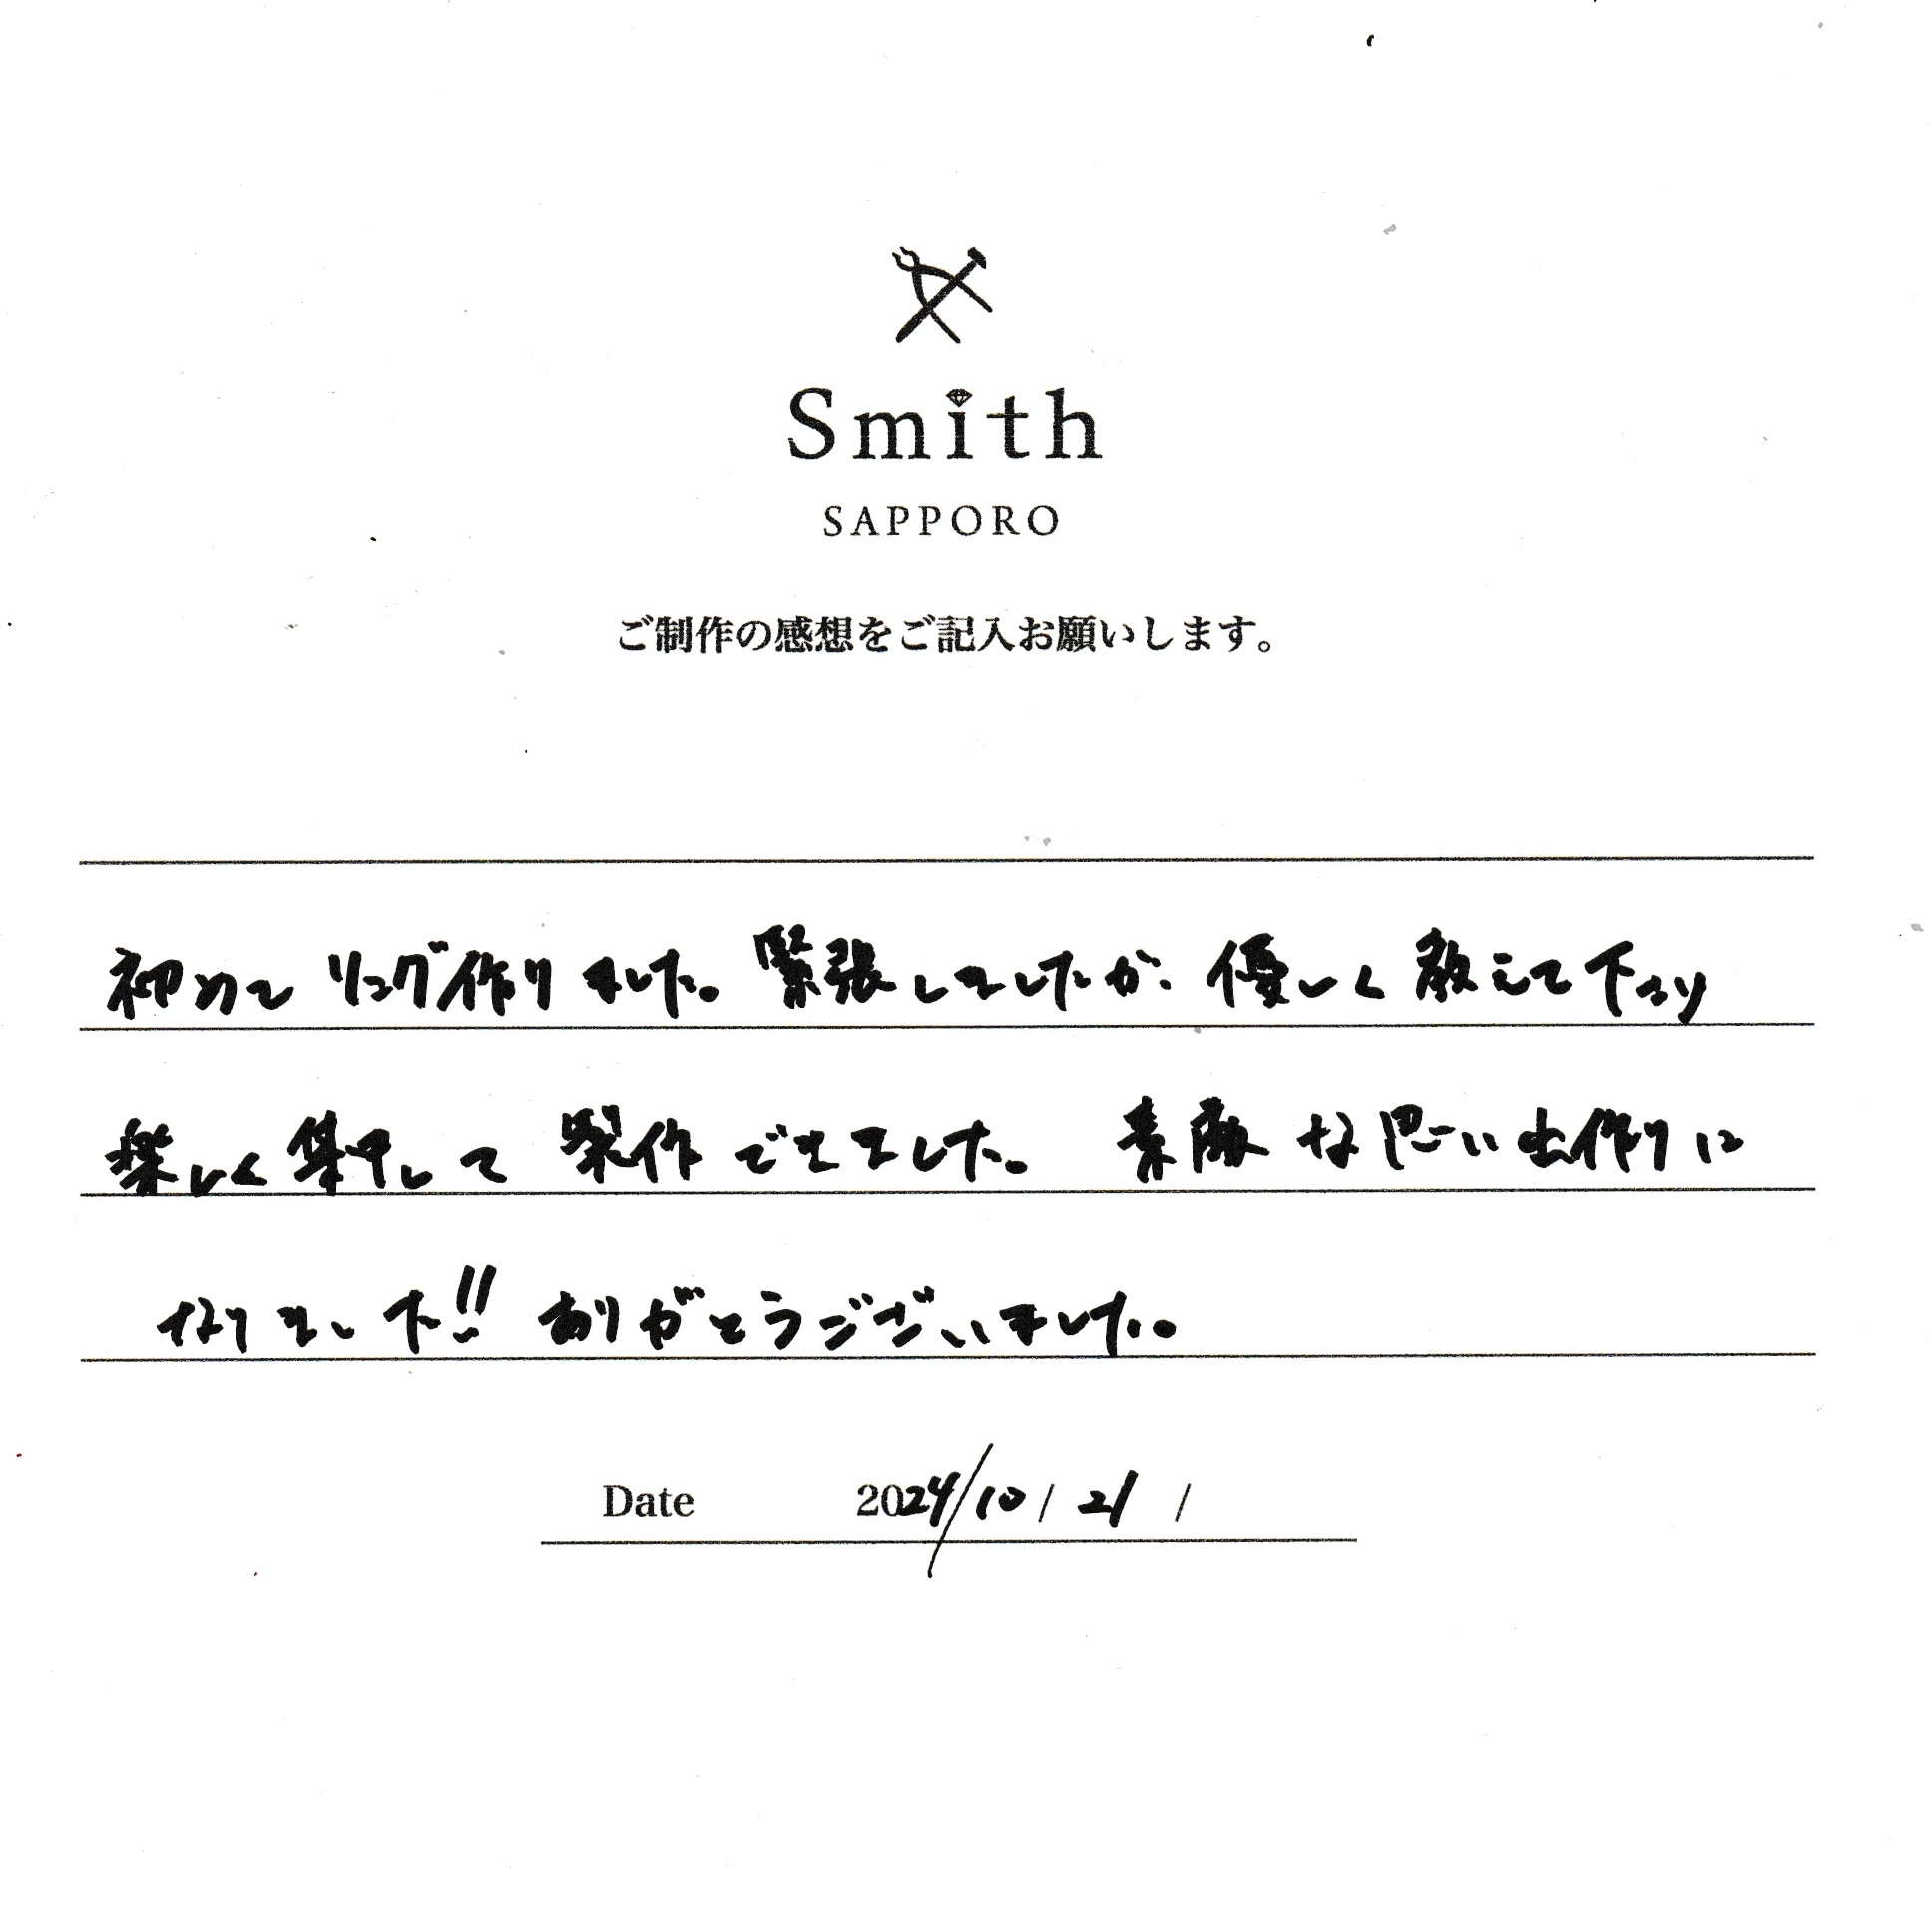 Smith
SAPPORO
ご制作の感想をご記入お願いします。
初めてリング作りました。緊張しましたが、優しく教えて下さり
楽しく集中して製作できました。素敵な思い出作りに
なりました!! ありがとうございました。
Date 2024/10/21/